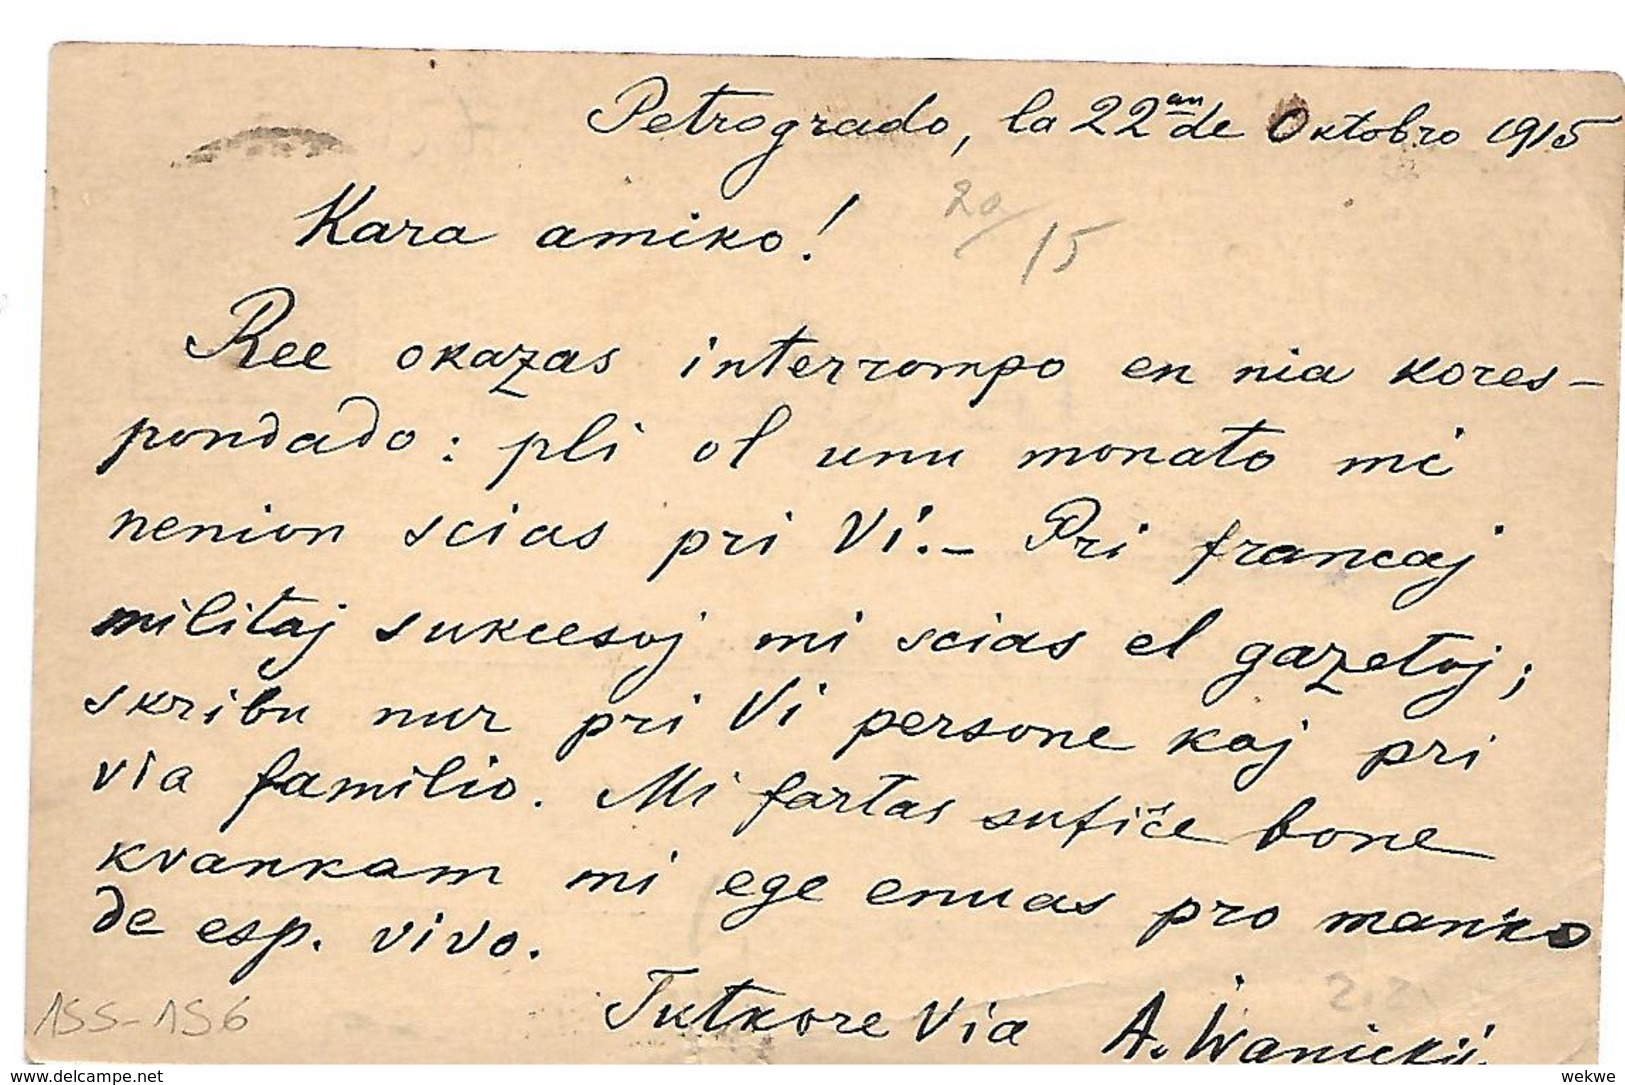 Petrogrado, la 22an de Oktobro 1915
Kara amiko!
20/15
Ree okazas interrompo en nia kores-
pondado: pli ol unu monato mi
nenion scias pri Vi. – Pri francaj
militaj sukcesoj mi scias el gazetoj;
skribu nur pri Vi persone kaj pri
via familio. Mi fartas sufiĉe bone
kvankam mi ege enuas pro manko
de esp. vivo.
Tutkore Via A. Wanickij.
155-156
wekwe